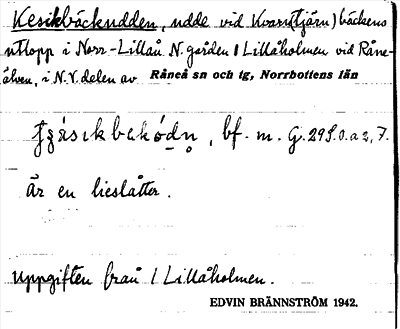 Kesikbäckudden, udde vid Kvarn(tjärn)bäckens
utlopp i Norr-Lillån N. gården 1 Lillåholmen vid Råne-
älven, i N.V. delen av Råneå sn och tg, Norrbottens län
bf. m. G. 295.0.a 2,7.
Är en lieslåtter.
Uppgiften från 1 Lillåholmen.
EDVIN BRÄNNSTRÖM 1942.